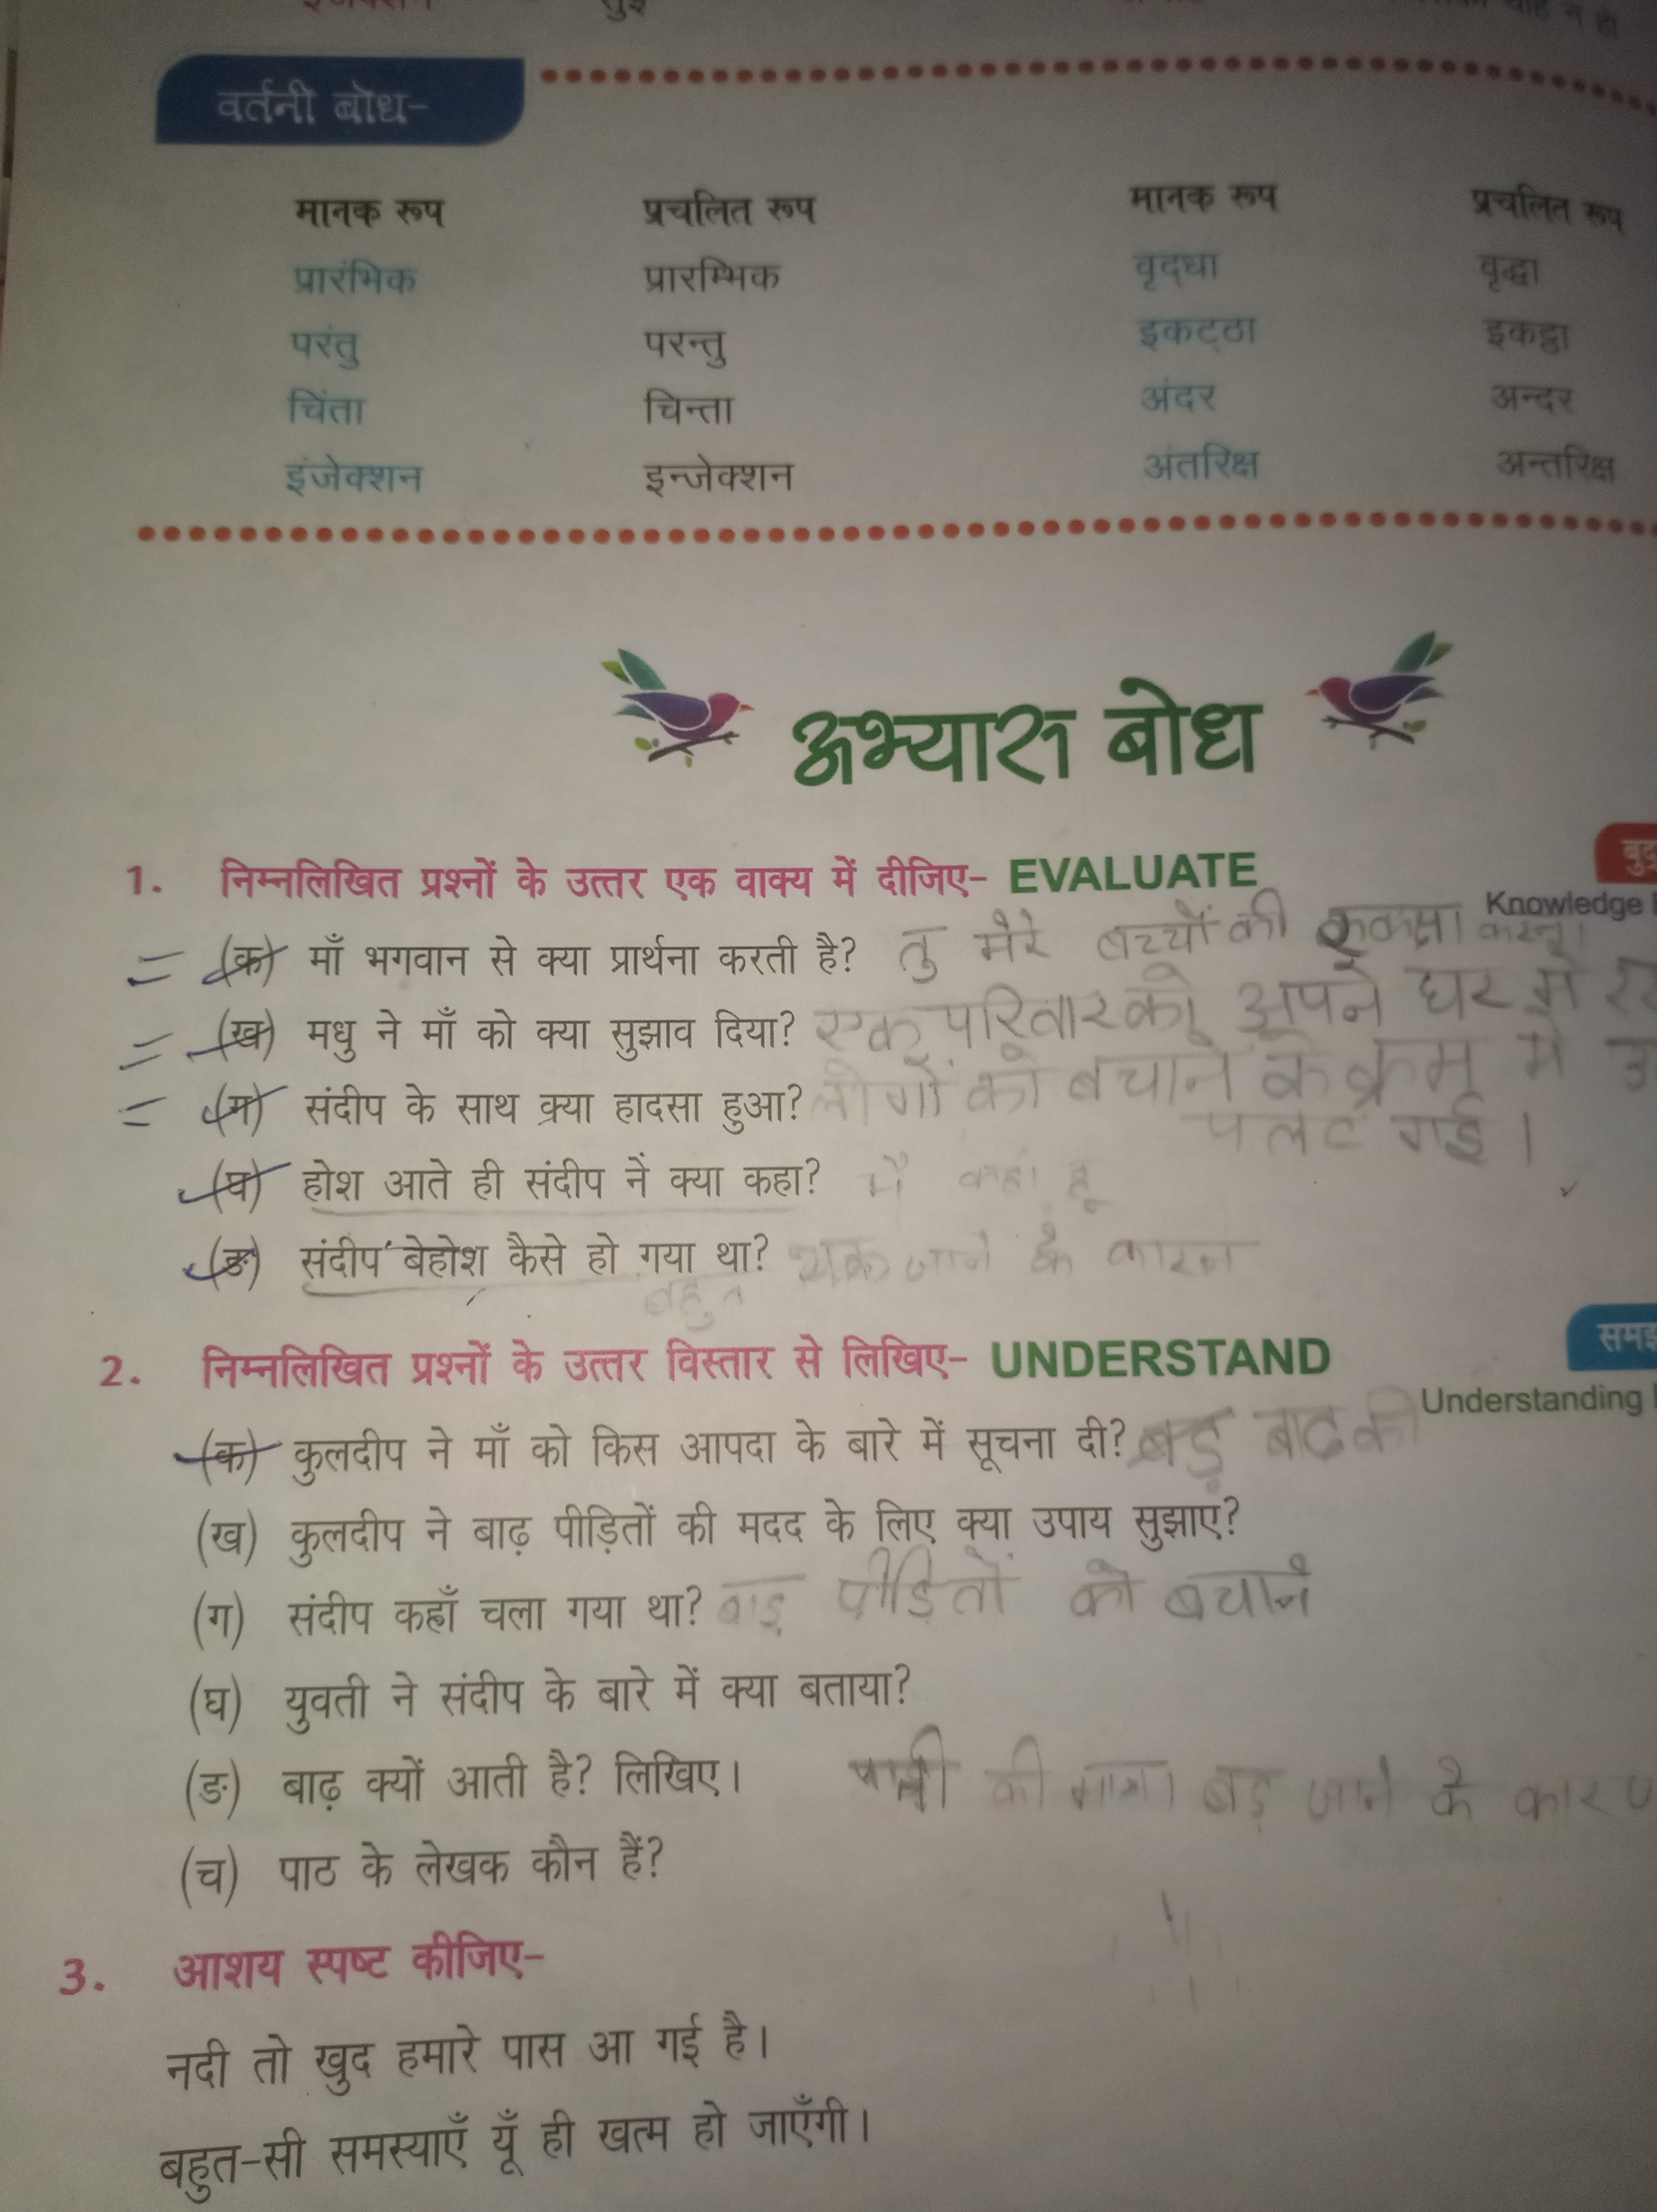 वर्तनी बोध-
मानक रूप प्रचलित रूप मानक रूप प्रचलित रूप
प्रारंभिक प्रारम्भिक वृद्धा वृद्धा
परंतु परन्तु इकट्ठा इकट्ठा
चिंता चिन्ता अंदर अन्दर
इंजेक्शन इन्जेक्शन अंतरिक्ष अन्तरिक्ष
अभ्यास बोध
1. निम्नलिखित प्रश्नों के उत्तर एक वाक्य में दीजिए- EVALUATE
Knowledge
(क) माँ भगवान से क्या प्रार्थना करती है? तु मेरे बच्चों की करना।
(ख) मधु ने माँ को क्या सुझाव दिया? एक परिवार को अपने घर में
(ग) संदीप के साथ क्या हादसा हुआ? लोगों को बचाने के क्रम में
पलट गई।
(घ) होश आते ही संदीप ने क्या कहा? मै कहां हू
(ङ) संदीप बेहोश कैसे हो गया था? थक जाने के कारन
बहुत
2. निम्नलिखित प्रश्नों के उत्तर विस्तार से लिखिए- UNDERSTAND
Understanding
(क) कुलदीप ने माँ को किस आपदा के बारे में सूचना दी? बाढ की
(ख) कुलदीप ने बाढ़ पीड़ितों की मदद के लिए क्या उपाय सुझाए?
(ग) संदीप कहाँ चला गया था? पीड़ितों को बचाने
(घ) युवती ने संदीप के बारे में क्या बताया?
(ङ) बाढ़ क्यों आती है? लिखिए। पानी की बड़ जाने के कारण
(च) पाठ के लेखक कौन हैं?
3. आशय स्पष्ट कीजिए-
नदी तो खुद हमारे पास आ गई है।
बहुत-सी समस्याएँ यूँ ही खत्म हो जाएँगी।